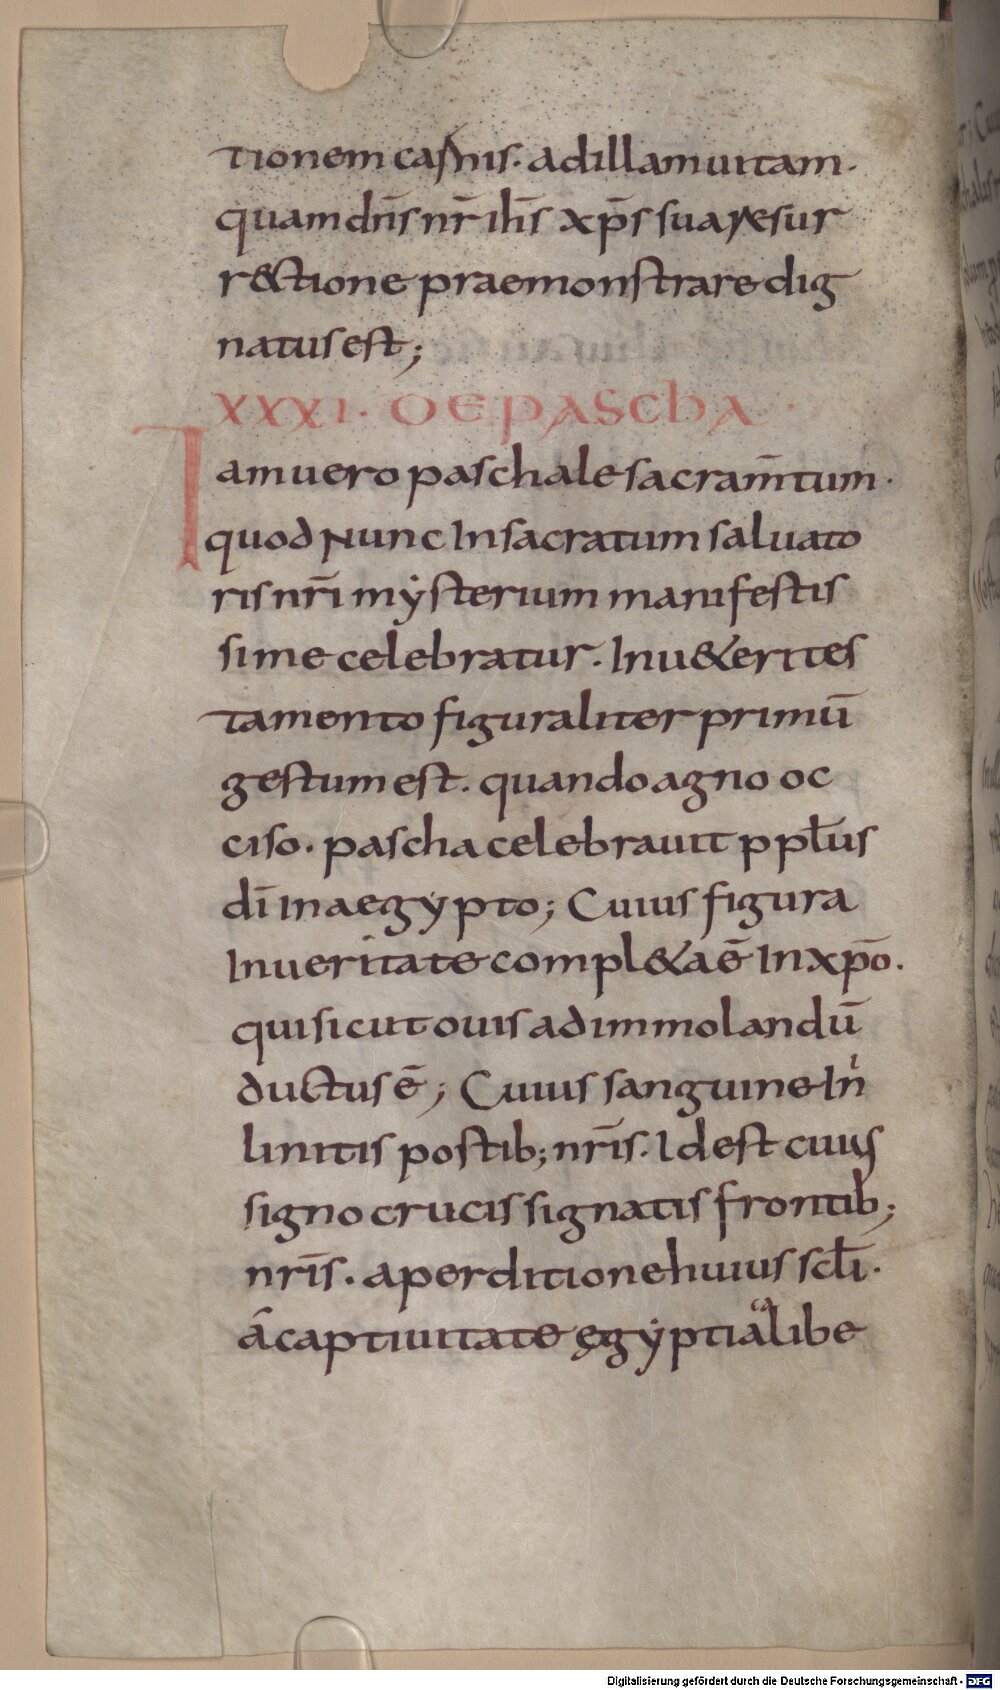 tionem carnis. ad illam uitam.
quam dn̄s nr̄ ih̄s xp̄s sua resur
r&ctione praemonstrare dig
natus est;
XXXI. DE PASCHA
Iam uero paschale sacram̄tum.
quod nunc In sacratum saluato
ris nr̄i mẏsterium manifestis
sime celebratur. In u&eri tes
tamento figuraliter primū
gestum est. quando agno oc
ciso. pascha celebrauit p ppl̄us
dī In aegypto; Cuius figura
In ueritate compl&a ē In xp̄o.
qui sicut ouis ad immolandū
ductus ē; Cuius sanguine In
linitis postib; nr̄is. Id est cuius
signo crucis signatis frontib;
nr̄is. a perditione huius scl̄i.
á captiuitate ęgẏptia libe
Digitalisierung gefördert durch die Deutsche Forschungsgemeinschaft - DFG